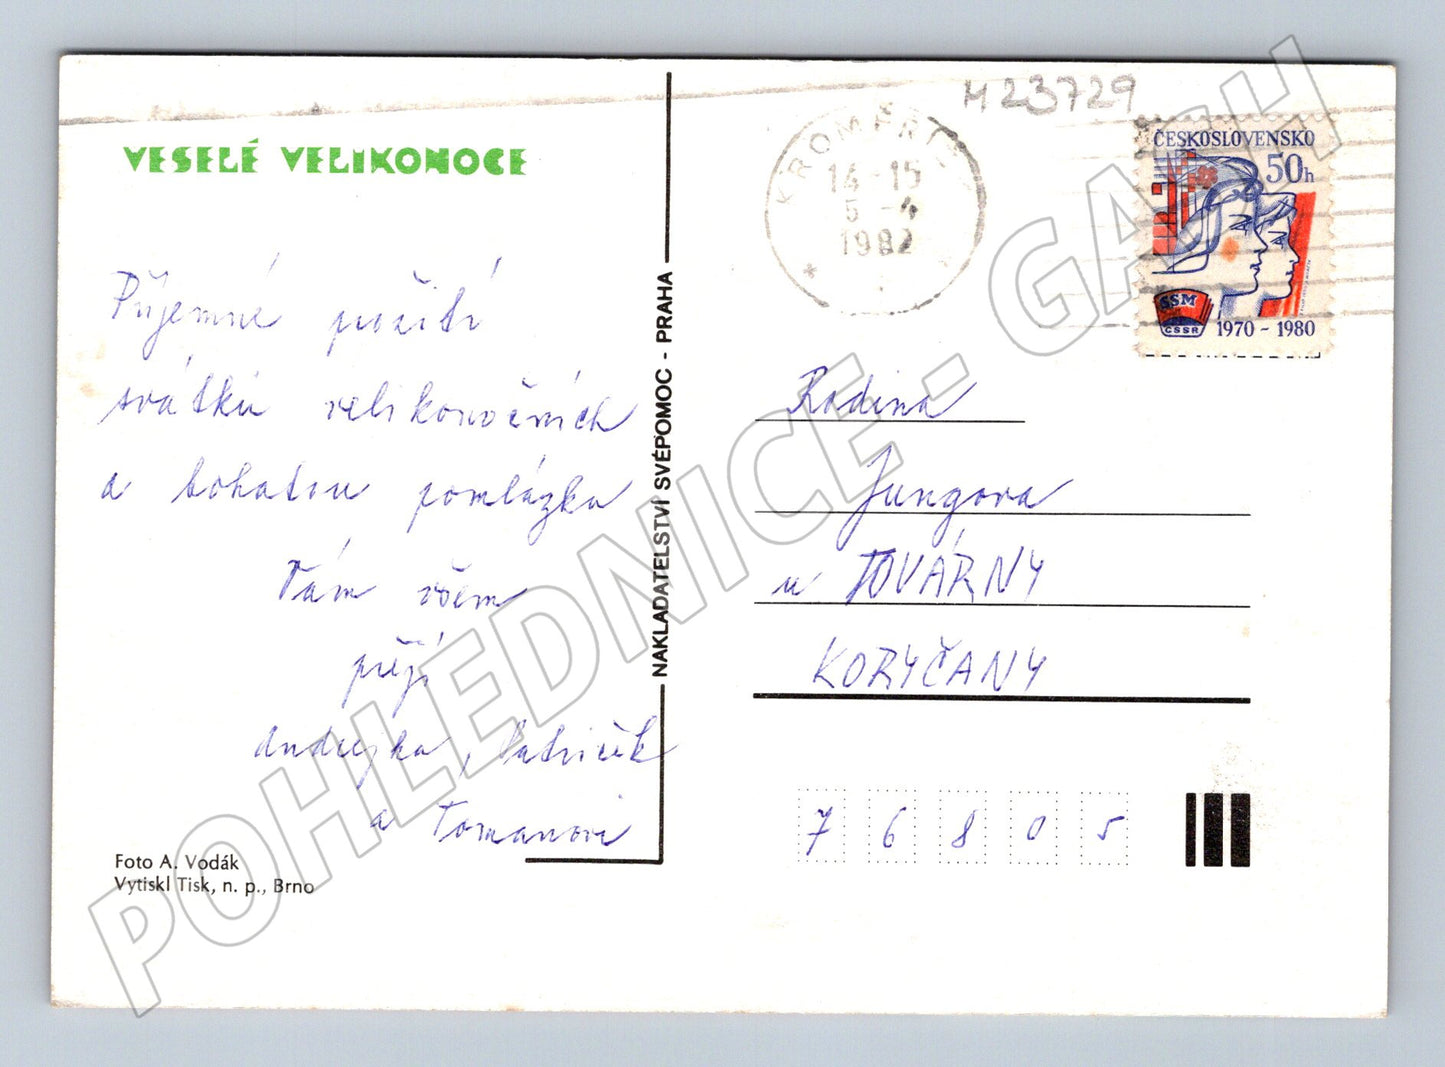 VESELÉ VELIKONOCE
Příjemné prožití
svátků velikonočních
a bohatou pomlázku
Vám všem
přejí
Andrejka, Patriček
a Tomanovi
Foto A. Vodák
Vytiskl Tisk, n. p., Brno
NAKLADATELSTVÍ SVÉPOMOC - PRAHA
M 23729
KROMĚŘÍŽ
14-15
5-4
1982
ČESKOSLOVENSKO
50h
SSM
ČSSR
1970 - 1980
Rodina
Jungova
u TOVÁRNY
KORYČANY
76805
POHLEDNICE - GASH